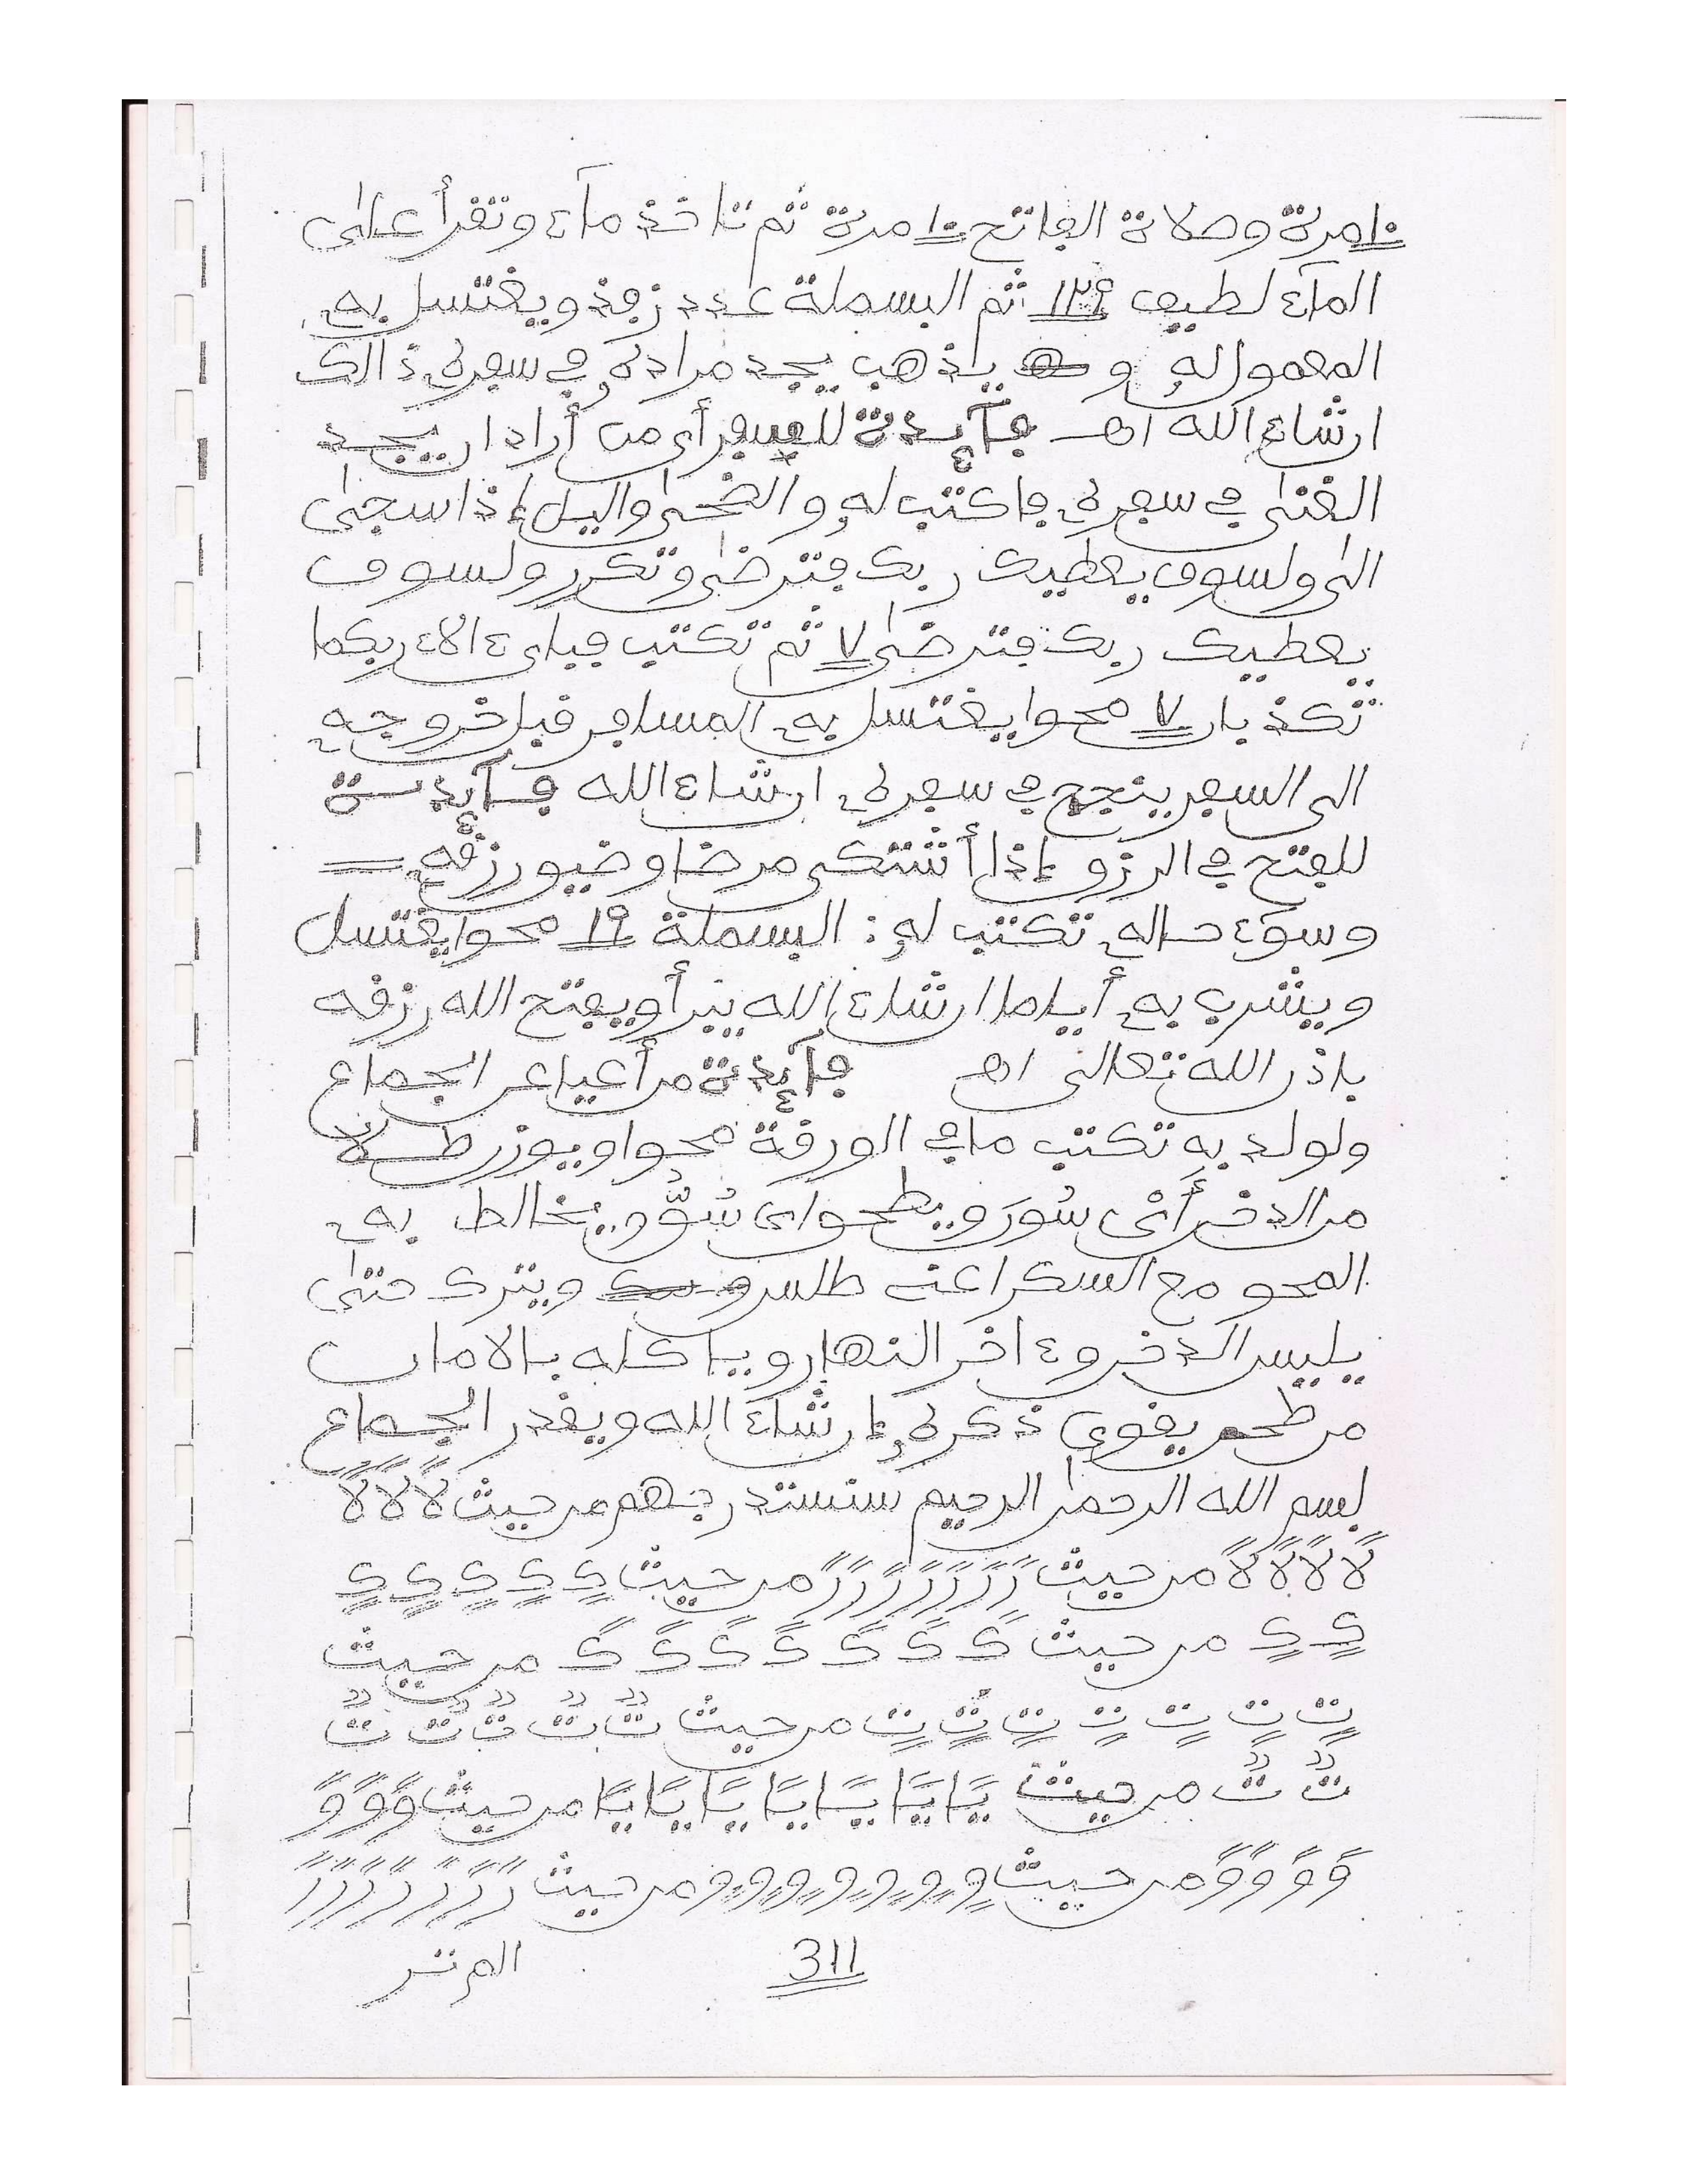 ١٠ مرة وصلاة الفاتح ١٠ مرة ثم تاخذ ماء وتقرأ على
الماء لطيف ١٢٩ ثم البسملة عدد زفذ ويغتسل به
المعمول له و يذهب يجد مراده في سفره ذالك
ارشاء الله اهـ فآئدة للسفر أي من أراد ان يجد
الغنى في سفره فاكتب له والضحى واليل إذا سجى
الى ولسوف يعطيك ربك فترضى وتكرر ولسوف
يعطيك ربك فترضى ٧ ثم تكتب فبأى ءالاء ربكما
تكذبان ٧ محوا يغتسل به المسافر قبل خروجه
الى السفر ينجح في سفره ارشاء الله فآئدة
للفتح في الرزق إذا أشتكى مرضا وضيق رزقه
وسوء حاله تكتب له : البسملة ١٩ محوا يغتسل
ويشرب به أياما ارشاء الله يبرأ ويفتح الله رزقه
باذن الله تعالى اهـ فآئدة من أعيا عن الجماع
ولولد به تكتب ما في الورقة محوا ويوزن
من الدخن أي سور و يطحو اى سو يخالط به
المحو مع السكر ويترك حتى
ييبس الدخن وء اخر النهار وياكله بالامان
من طحم يقوي ذكره إن شاء الله ويقدر الجماع
بسم الله الرحمن الرحيم سنستدرجهم من حيث لاً لاً لاً
لاً لاً لاً لاً من حيث رً رً رً رً رً رً رً من حيث كٍ كٍ كٍ كٍ كٍ
كٍ كٍ من حيث كً كً كً كً كً كً كً من حيث
تٍ تٍ تٍ تٍ تٍ تٍ تٍ من حيث تٌ تٌ تٌ تٌ تٌ
تٌ تٌ من حيث يًا يًا يًا يًا يًا يًا يًا من حيث وً وً وً
وً وً وً وً من حيث وٍ وٍ وٍ وٍ وٍ وٍ وٍ من حيث رً رً رً رً رً رً رً
311
الم تر